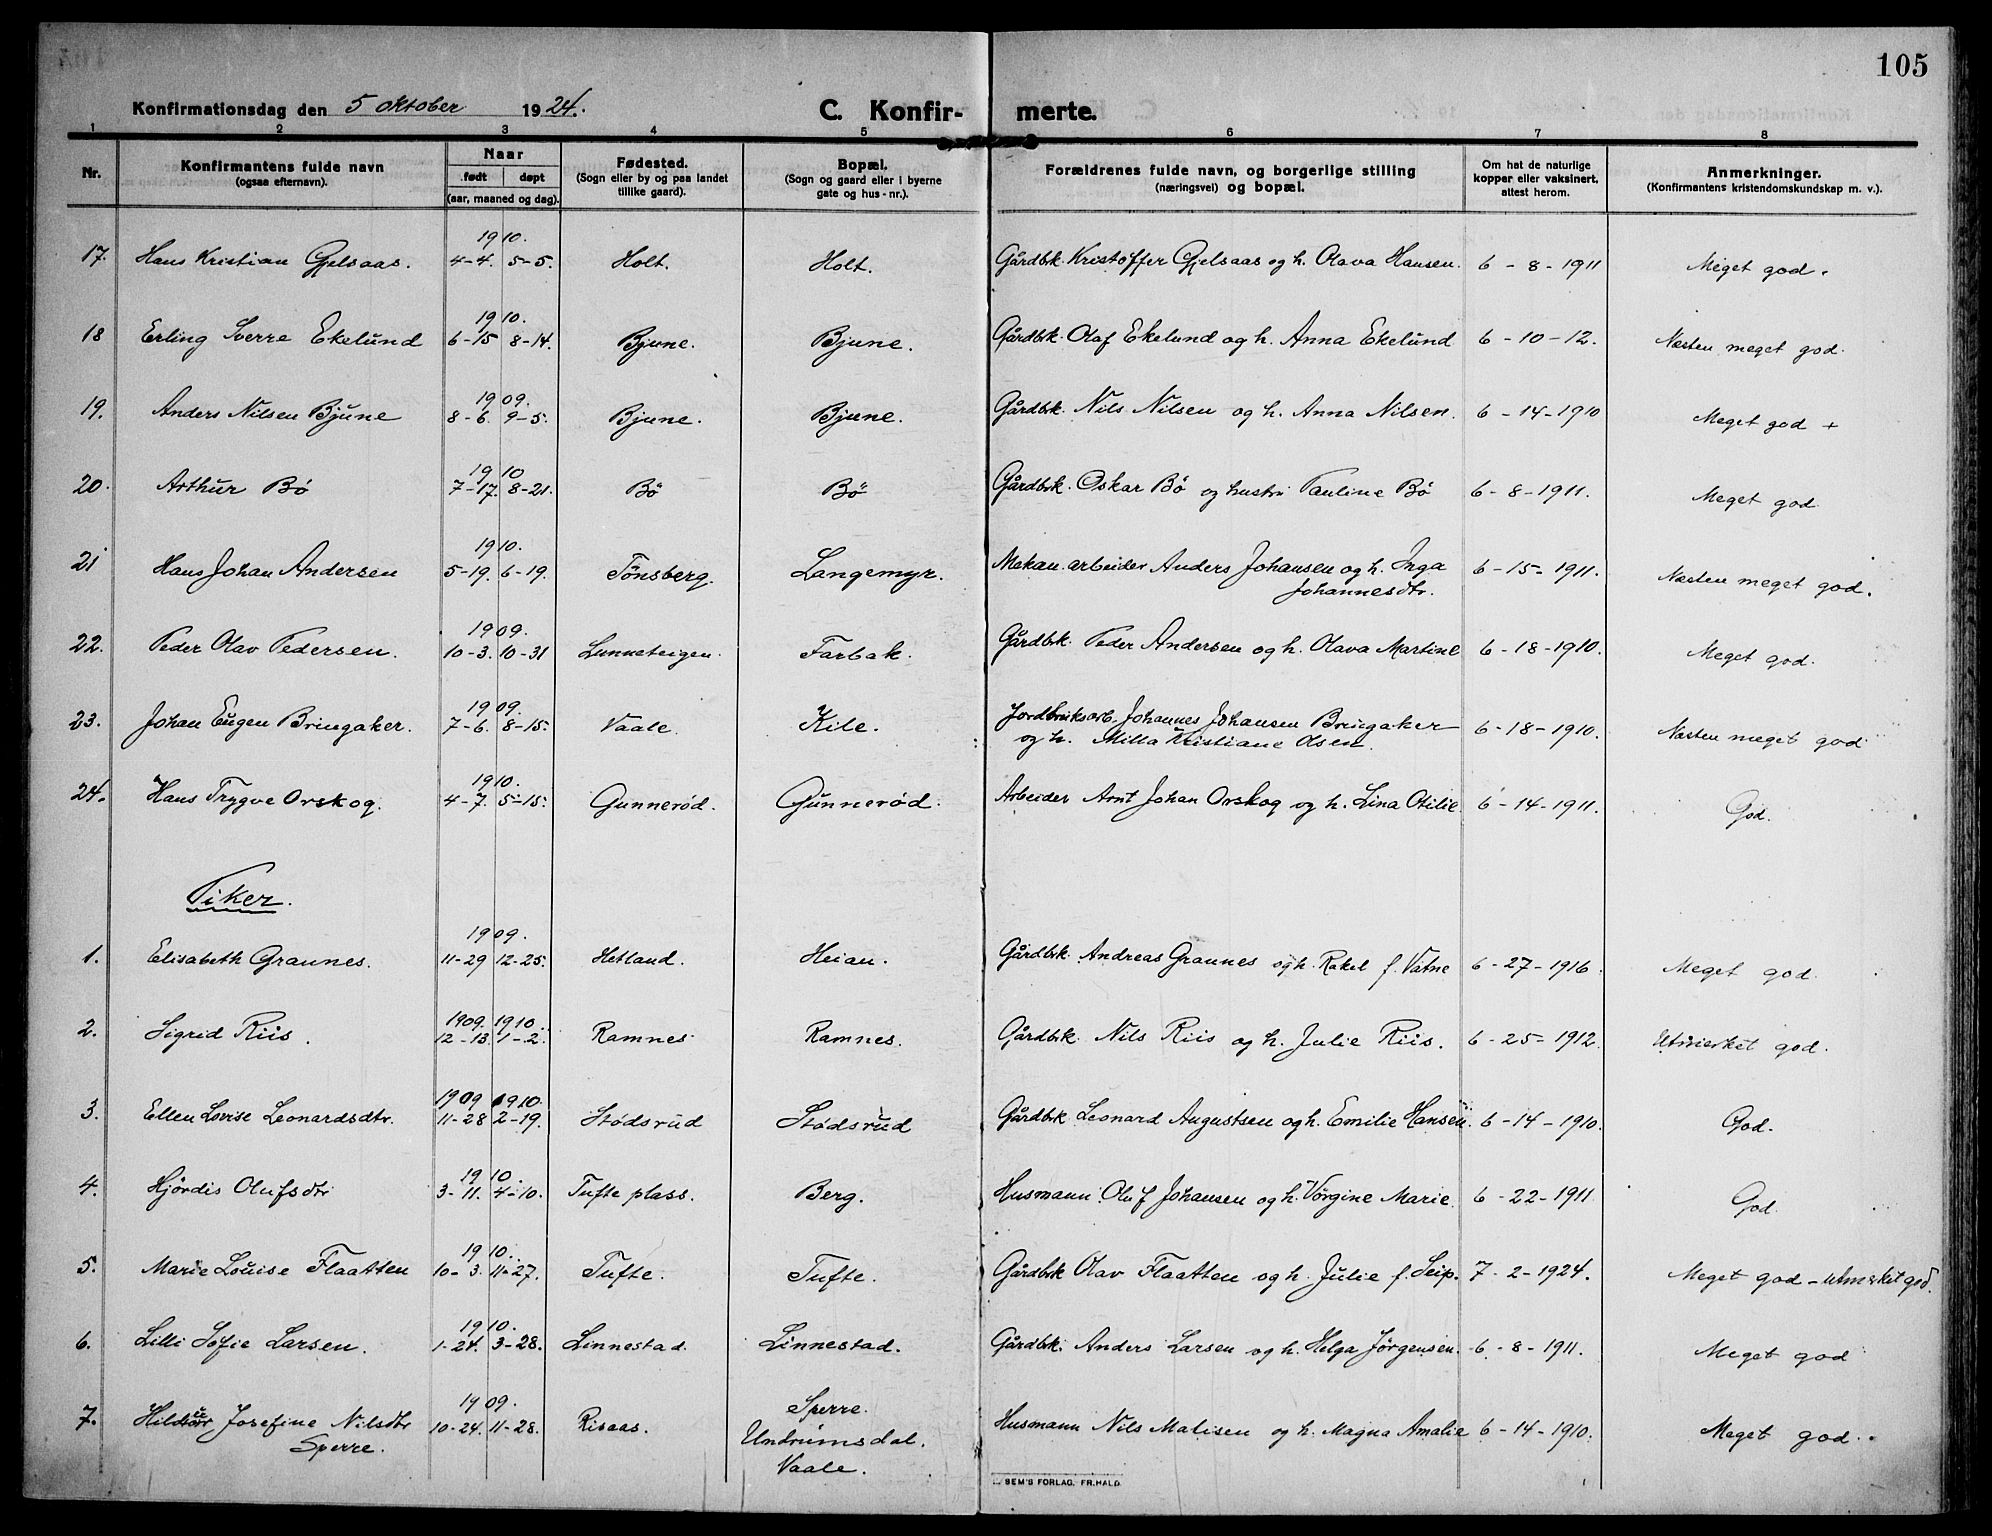 105
Konfirmationsdag den 5 oktober 1924. C. Konfir- merte.
1 2 3 4 5 6 7 8
Nr. Konfirmantens fulde navn (ogsaa efternavn). Naar født døpt (aar, maaned og dag). Fødested. (Sogn eller by og paa landet tillike gaard). Bopæl. (Sogn og gaard eller i byerne gate og hus-nr.). Forældrenes fulde navn, og borgerlige stilling (næringsvei) og bopæl. Om hat de naturlige kopper eller vaksinert, attest herom. Anmerkninger. (Konfirmantens kristendomskundskap m. v.).
1910.
17. Hans Kristian Gjelsaas. 4-4. 5-5. Holt. Holt. Gårdbk. Kristoffer Gjelsaas og h. Olava Hansen. 6-8-1911 Meget god.
1910.
18 Erling Sverre Ekelund 6-15 8-14. Bjune. Bjune. Gårdbk. Olaf Ekelund og h. Anna Ekelund 6-10-12. Næsten meget god.
1909.
19. Anders Nilsen Bjune 8-6. 9-5. Bjune. Bjune. Gårdbk. Nils Nilsen og h. Anna Nilsen. 6-14-1910 Meget god +
1910
20. Arthur Bö 7-17. 8-21. Bö Bö Gårdbk. Oskar Bö og hustru Pauline Bö 6-8-1911. Meget god
1910.
21 Hans Johan Andersen 5-19. 6-19. Tönsberg. Langemyr. Mekan. arbeider Anders Johansen og h. Inga 6-15-1911. Næsten meget god.
Johannesdtr.
1909.
22. Peder Olav Pedersen. 10-3. 10-31 Lunneteigen. Farbak. Gårdbk. Peder Andersen og h. Olava Martine 6-18-1910. Meget god.
1909.
23. Johan Eugen Bringaker. 7-6. 8-15. Vaale. Kile. Jordbruksarb. Johannes Johansen Bringaker 6-18-1910. Næsten meget god
og h. Milla Kristiane Olsen.
1910.
24. Hans Trygve Orskog. 4-7. 5-15. Gunneröd. Gunneröd. Arbeider Arnt Johan Orskog og h. Lina Otilie 6-14-1911. God.
Piker.
1909.
1. Elisabeth Graunes. 11-29 12-25. Hetland. Heian. Gårdbk. Andreas Graunes og h. Rakel f. Vatne 6-27-1916. Meget god.
1909. 1910.
2. Sigrid Riis. 12-13. 1-2. Ramnes Ramnes. Gårdbk. Nils Riis og h. Julie Riis. 6-25-1912. Utmerket god.
1909 1910.
3. Ellen Lovise Leonardsdtr. 11-28 2-19. Stödsrud Stödsrud Gårdbk Leonard Augustsen og h. Emilie Hansen. 6-14-1910. God.
1910.
4. Hjördis Olufsdtr 3-11. 4-10. Tufte plass. Berg. Husmann Oluf Johansen og h. Vörgine Marie 6-22-1911. God.
1910.
5. Marie Louise Flaatten 10-3. 11-27. Tufte. Tufte. Gårdbk Olav Flaatten og h. Julie f. Seip. 7-2-1924. Meget god - utmerket god.
1910.
6. Lilli Sofie Larsen. 1-24. 3-28. Linnestad. Linnestad. Gårdbk. Anders Larsen og h. Helga Jörgensen. 6-8-1911. Meget god
1909. Sperre.
7. Josefine Nilsdtr 10-24. 11-28. Risaas. Undrumsdal. Husmann Nils Malisen og h. Magna Amalie 6-14-1910. Meget god.
Sperre. Vaale.
SEM'S FORLAG, FR.HALD